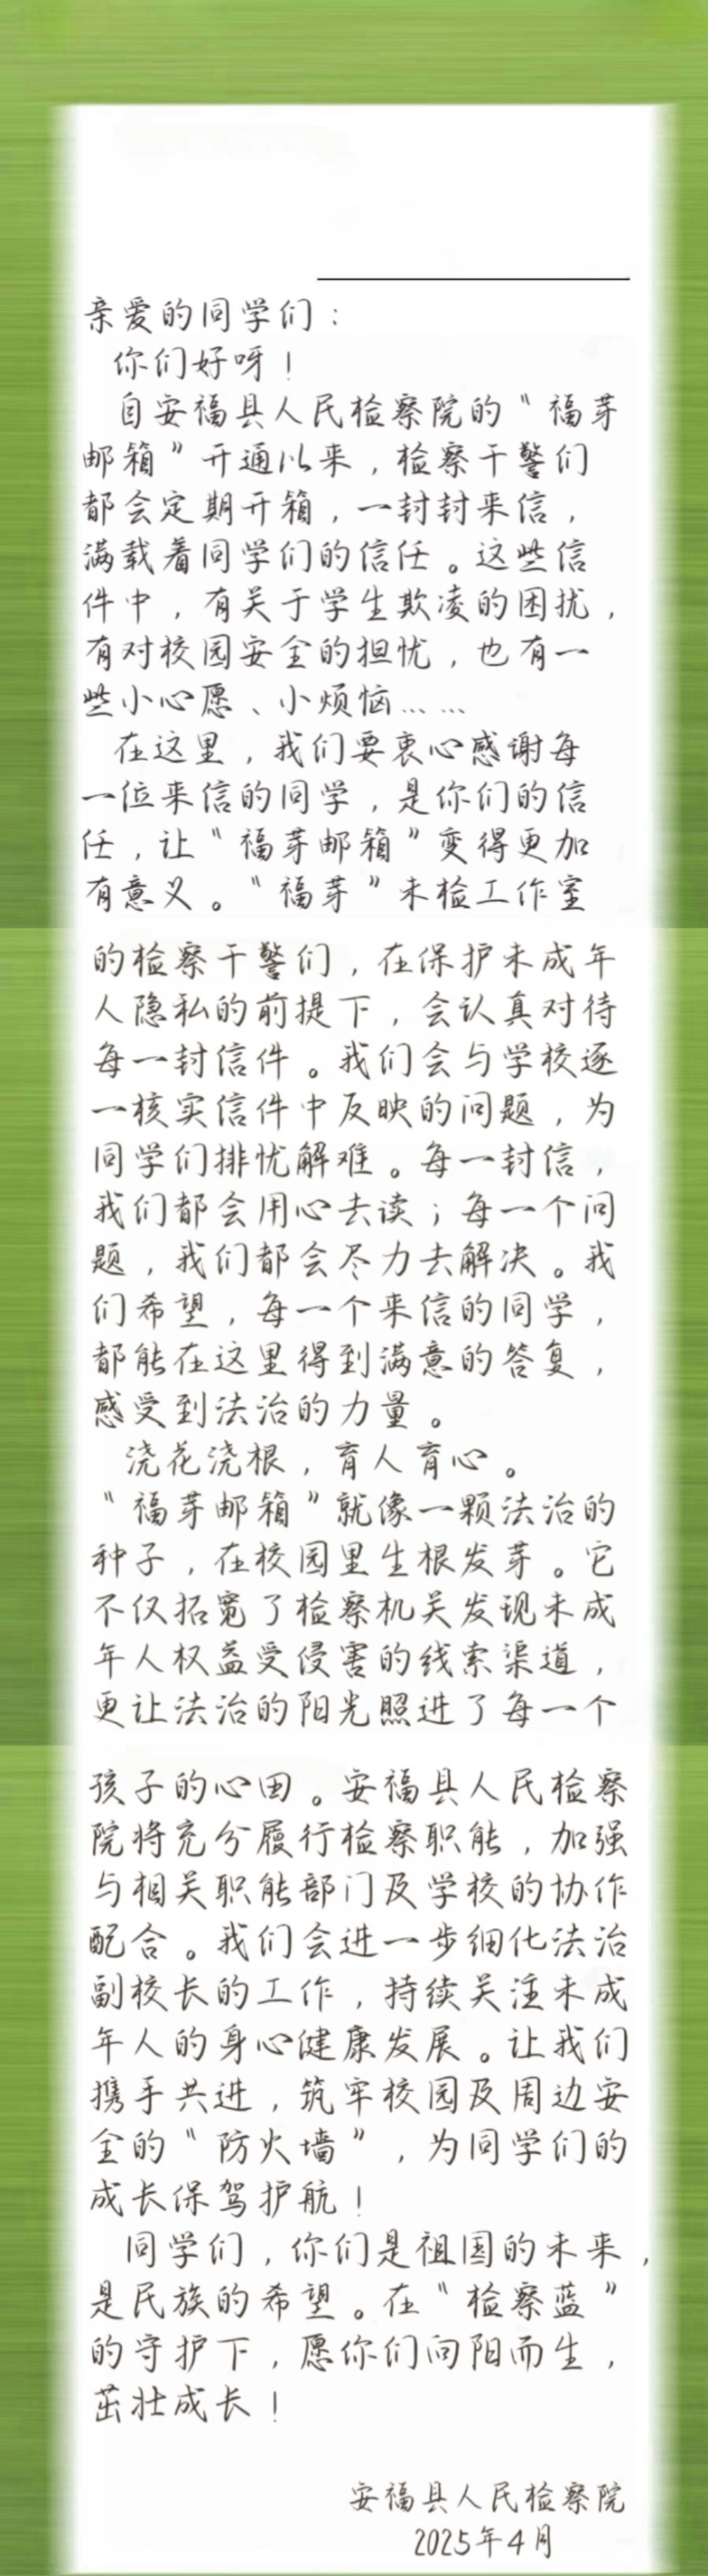 亲爱的同学们：
你们好呀！
自安福县人民检察院的“福芽
邮箱”开通以来，检察干警们
都会定期开箱，一封封来信，
满载着同学们的信任。这些信
件中，有关于学生欺凌的困扰，
有对校园安全的担忧，也有一
些小心愿、小烦恼……
在这里，我们要衷心感谢每
一位来信的同学，是你们的信
任，让“福芽邮箱”变得更加
有意义。“福芽”未检工作室
的检察干警们，在保护未成年
人隐私的前提下，会认真对待
每一封信件。我们会与学校逐
一核实信件中反映的问题，为
同学们排忧解难。每一封信，
我们都会用心去读；每一个问
题，我们都会尽力去解决。我
们希望，每一个来信的同学，
都能在这里得到满意的答复，
感受到法治的力量。
浇花浇根，育人育心。
“福芽邮箱”就像一颗法治的
种子，在校园里生根发芽。它
不仅拓宽了检察机关发现未成
年人权益受侵害的线索渠道，
更让法治的阳光照进了每一个
孩子的心田。安福县人民检察
院将充分履行检察职能，加强
与相关职能部门及学校的协作
配合。我们会进一步细化法治
副校长的工作，持续关注未成
年人的身心健康发展。让我们
携手共进，筑牢校园及周边安
全的“防火墙”，为同学们的
成长保驾护航！
同学们，你们是祖国的未来，
是民族的希望。在“检察蓝”
的守护下，愿你们向阳而生，
茁壮成长！
安福县人民检察院
2025年4月